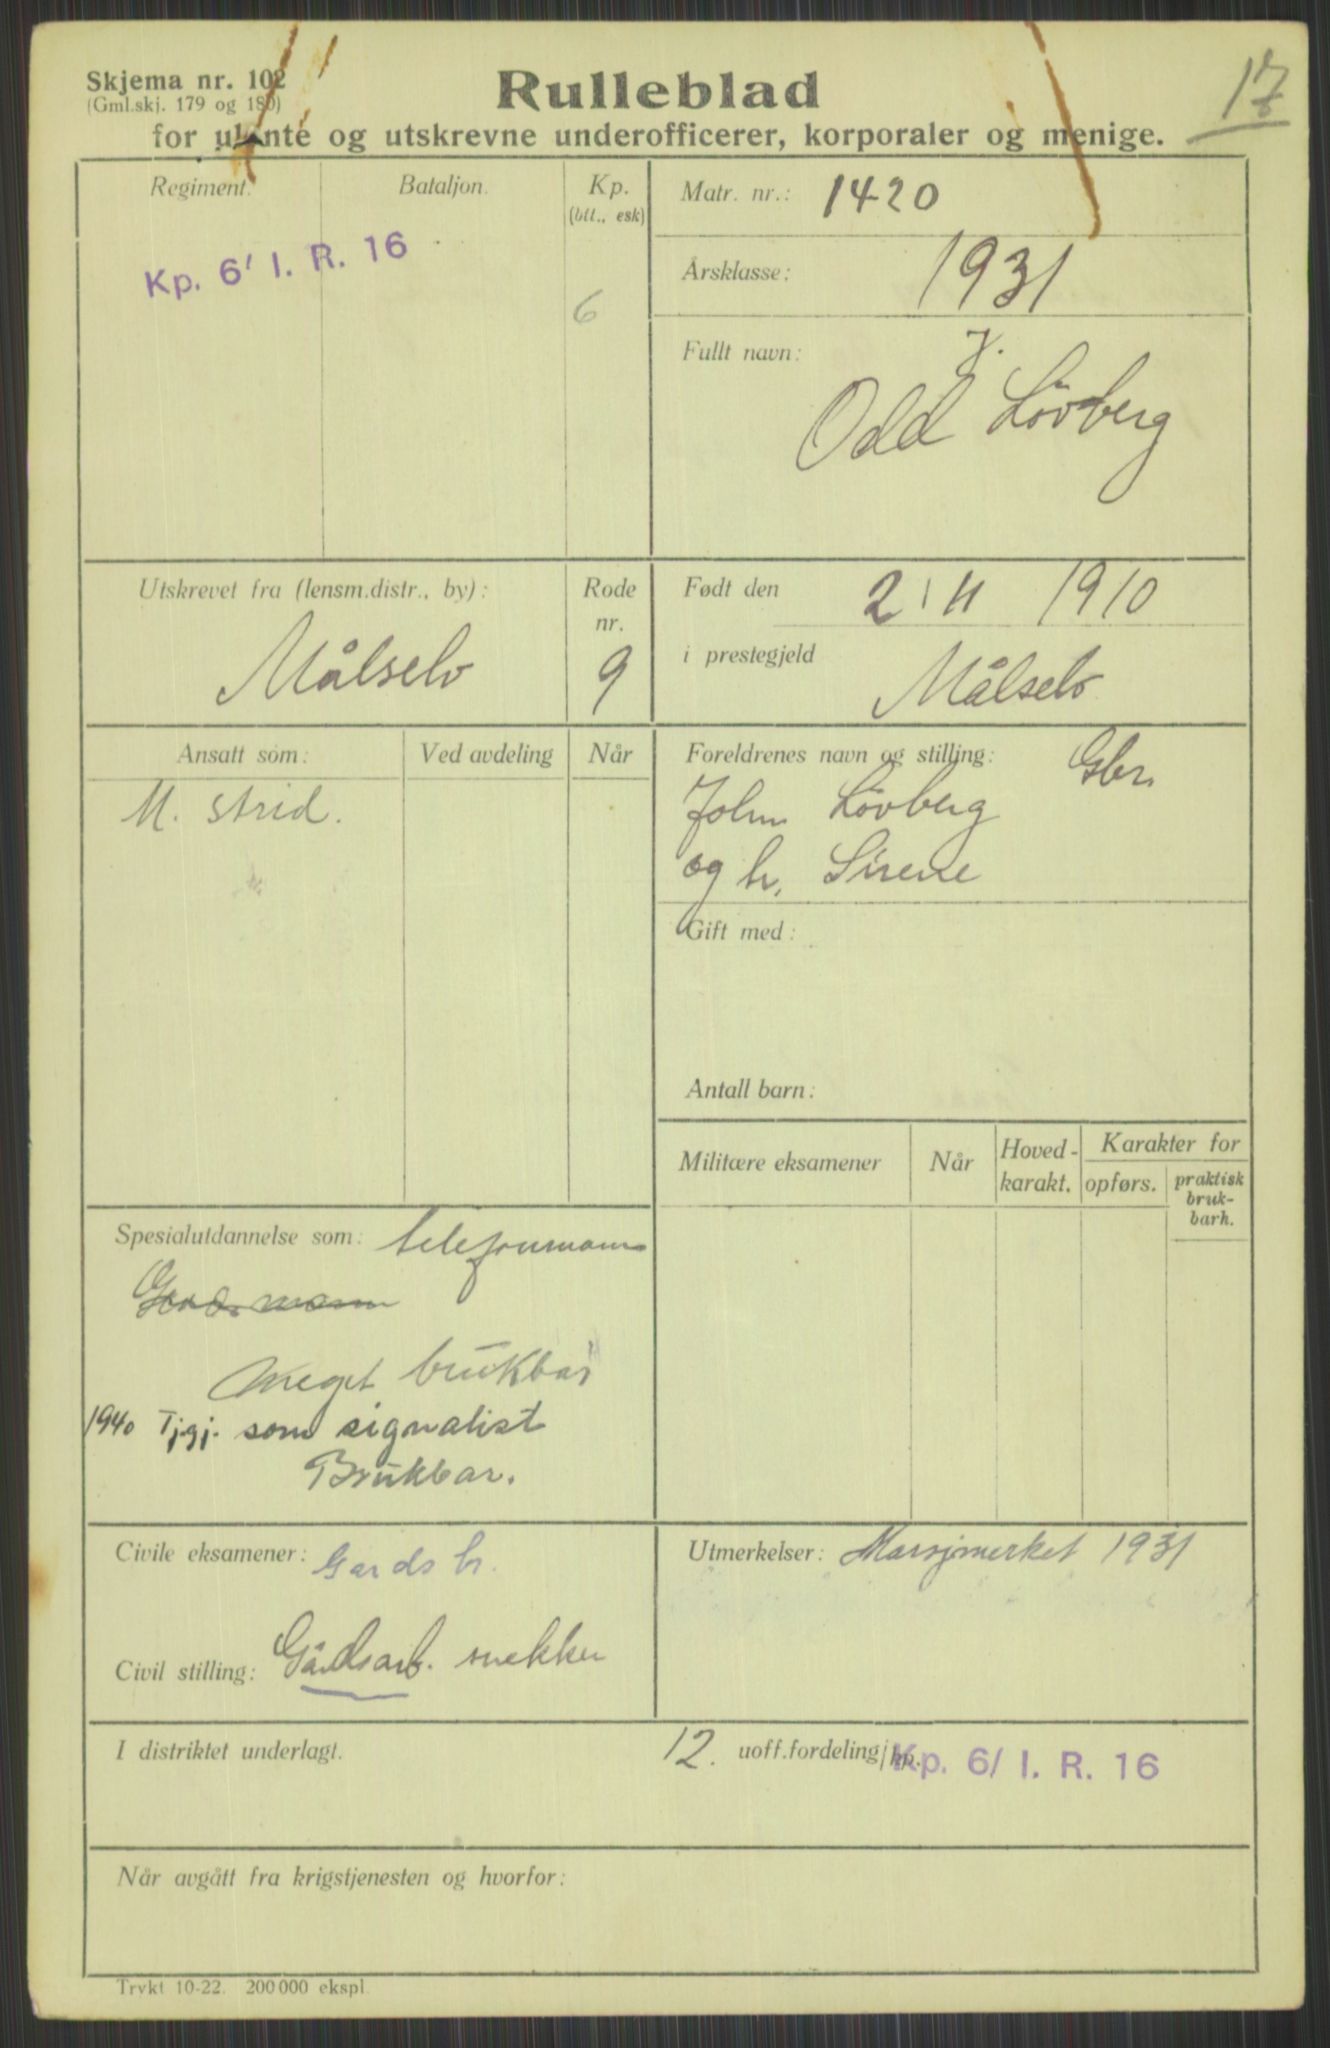 17
Skjema nr. 102
(Gml.skj. 179 og 180)
Rulleblad
for ulønte og utskrevne underofficerer, korporaler og menige.
Regiment.
Bataljon.
Kp.
(btt., esk)
Kp. 6/ I. R. 16
6
Matr. nr.: 1420
Årsklasse: 1931
Fullt navn: J.
Odd Lövberg
Utskrevet fra (lensm.distr., by):
Målselv
Rode
nr.
9
Født den 2 / 11 1910
i prestegjeld
Målselv
Ansatt som:
Ved avdeling
Når
M. strid.
Foreldrenes navn og stilling: Gbr.
John Lövberg
og h. Sirene
Gift med:
Antall barn:
Militære eksamener
Når
Hoved-
karakt.
Karakter for
opførs.
praktisk
bruk-
barh.
Spesialutdannelse som: telefonmann
meget brukbar
1940 Tjgj. som signalist
Brukbar.
Civile eksamener: Gards br.
Civil stilling: Gårdsarb. snekker
Utmerkelser: Marsjmerket 1931
I distriktet underlagt.
12. uoff.fordeling/kp. Kp. 6/ I. R. 16
Når avgått fra krigstjenesten og hvorfor:
Trykt 10-22. 200 000 ekspl.